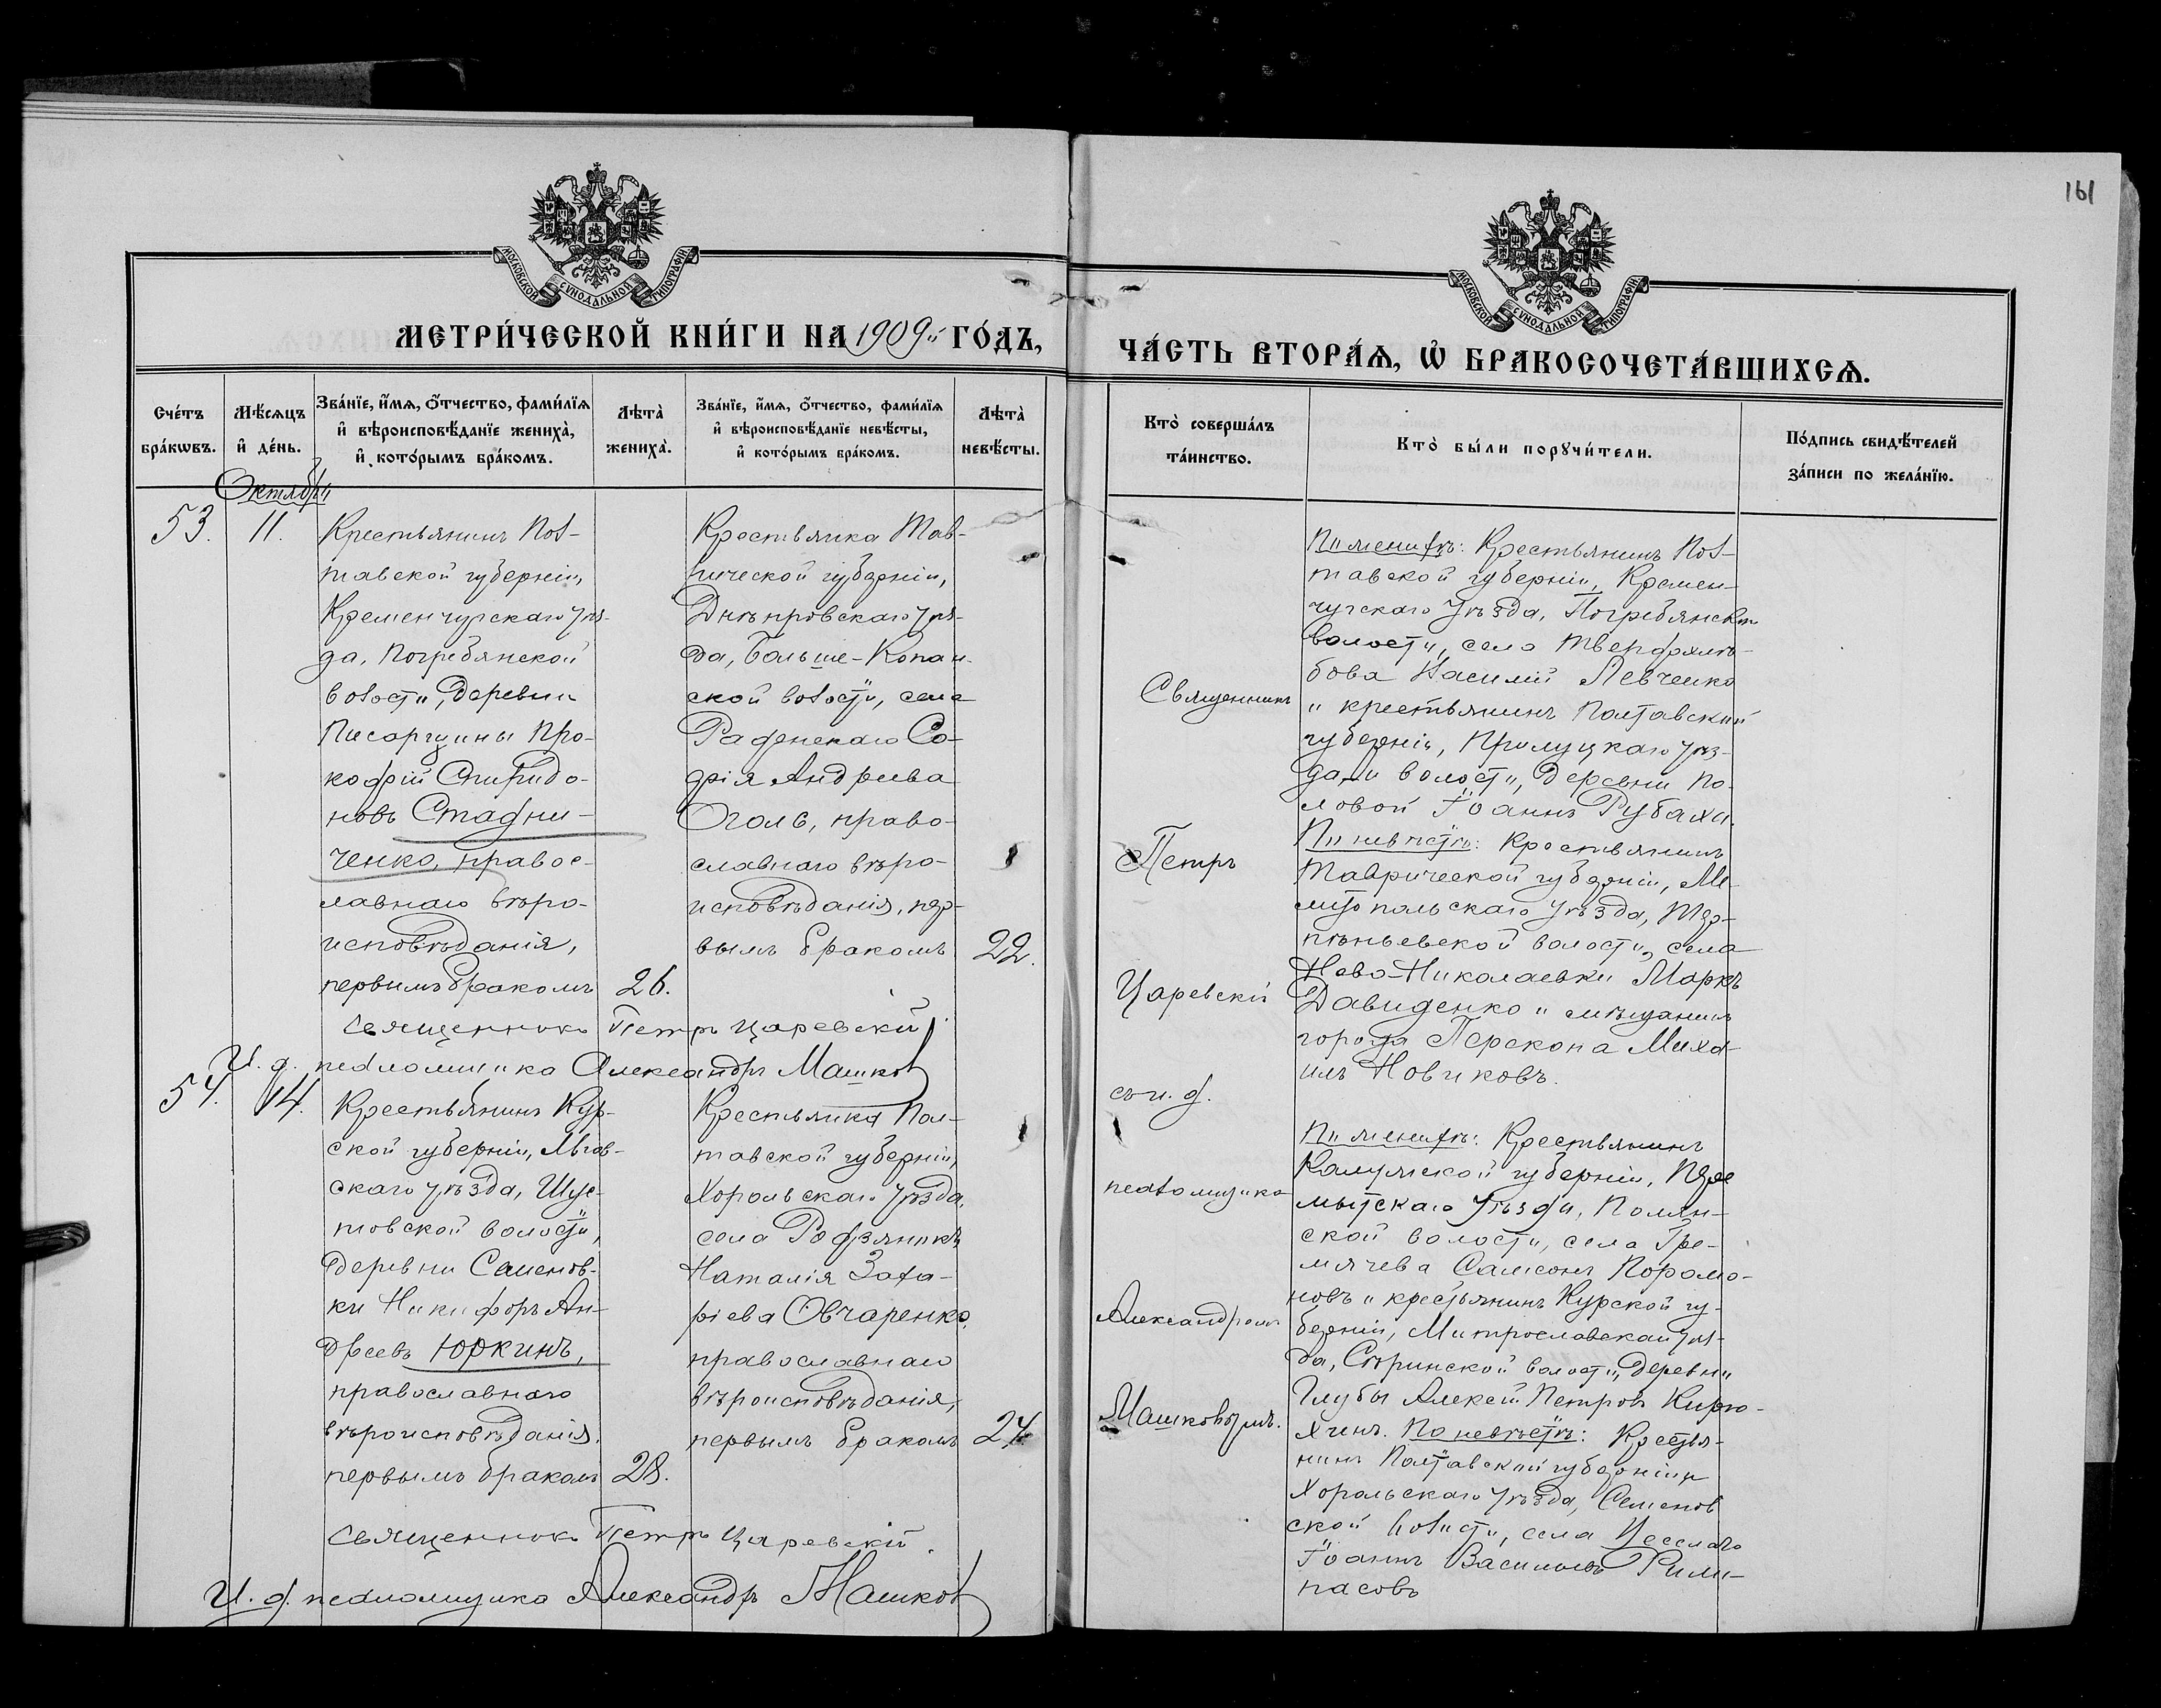 161
МОСКОВСКОЙ СУНОДАЛЬНОЙ ТИПОГРАФІИ
МЕТРИ́ЧЕСКОЙ КНИ́ГИ НА 1909й ГО́ДЪ,
Сче́тъ бра́кѡвъ.
Мѣ́сяцъ и҆ де́нь.
Зва́нїе, и҆́мѧ, ѻ҆́тчество, фами́лїѧ
и҆ вѣроисповѣ́данїе жениха̀,
и҆ кото́рымъ бра́комъ.
Лѣта̀ жениха̀.
Зва́нїе, и҆́мѧ, ѻ҆́тчество, фами́лїѧ
и҆ вѣроисповѣ́данїе невѣ́сты,
и҆ кото́рымъ бра́комъ.
Лѣта̀ невѣ́сты.
Октябрь
53.
11.
Крестьянинъ Пол-
тавской губерніи,
Кременчугскаго уѣз-
да, Погребянской
волости, деревни
Писарщины Про-
кофій Спиридо-
новъ Стадни-
ченко, правос-
лавнаго вѣро-
исповѣданія,
первымъ бракомъ
26.
Крестьянка Тав-
рической губерніи,
Днѣпровскаго уѣз-
да, Больше-Копан-
ской волости, села
Раденскаго Со-
фія Андреева
Оголь, право-
славнаго вѣро-
исповѣданія, пер-
вымъ бракомъ
22.
Священникъ Петръ Царевскій
И. д. псаломщика Александръ Машков
54.
14.
Крестьянинъ Кур-
ской губерніи, Льгов-
скаго уѣзда, Шус-
товской волости,
деревни Семенов-
ки Никифоръ Ан-
дреевъ Юркинъ,
православнаго
вѣроисповѣданія,
первымъ бракомъ
28.
Крестьянка Пол-
тавской губерніи,
Хорольскаго уѣзда,
села Родзянокъ
Наталія Заха-
ріева Овчаренко,
православнаго
вѣроисповѣданія,
первымъ бракомъ
24
Священникъ Петръ Царевскій.
И. д. псаломщика Александръ Машков
МОСКОВСКОЙ СУНОДАЛЬНОЙ ТИПОГРАФІИ
ЧА́СТЬ ВТОРА́Ѧ, Ѡ҆ БРАКОСОЧЕТА́ВШИХСѦ.
Кто̀ соверша́лъ
та́инство.
Кто̀ бы́ли порꙋчи́тели.
По́дпись свидѣ́телей
за́писи по жела́нїю.
Священникъ
Петръ
Царевскій
съ и. д.
псаломщика
Александромъ
Машковымъ.
По женихѣ: Крестьянинъ Пол-
тавской губерніи, Кремен-
чугскаго уѣзда, Погребянской
волости, села Твердохлѣ-
бова Василій Левченко
и крестьянинъ Полтавской
губерніи, Прилуцкаго уѣз-
да и волости, деревни По-
ловой Іоаннъ Рубаха.
По невѣстѣ: Крестьянинъ
Таврической губерніи, Ме-
литопольскаго уѣзда, Тер-
пѣньевской волости, села
Ново-Николаевки Маркъ
Давиденко и мѣщанинъ
города Перекопа Миха-
илъ Новиковъ.
По женихѣ: Крестьянинъ
Калужской губерніи, Пере
мышскаго уѣзда, Полян-
ской волости, села Гре-
мячева Самсонъ Парамо-
новъ и крестьянинъ Курской гу-
берніи, Митрославской уѣз-
да, волости, деревни
Глубы Алексей Петровъ Кирю-
хинъ. По невѣстѣ: Крестья-
нинъ Полтавской губерніи
Хорольскаго уѣзда, Семенов
ской волости, села
Іоаннъ Васильевъ Рили-
пасовъ